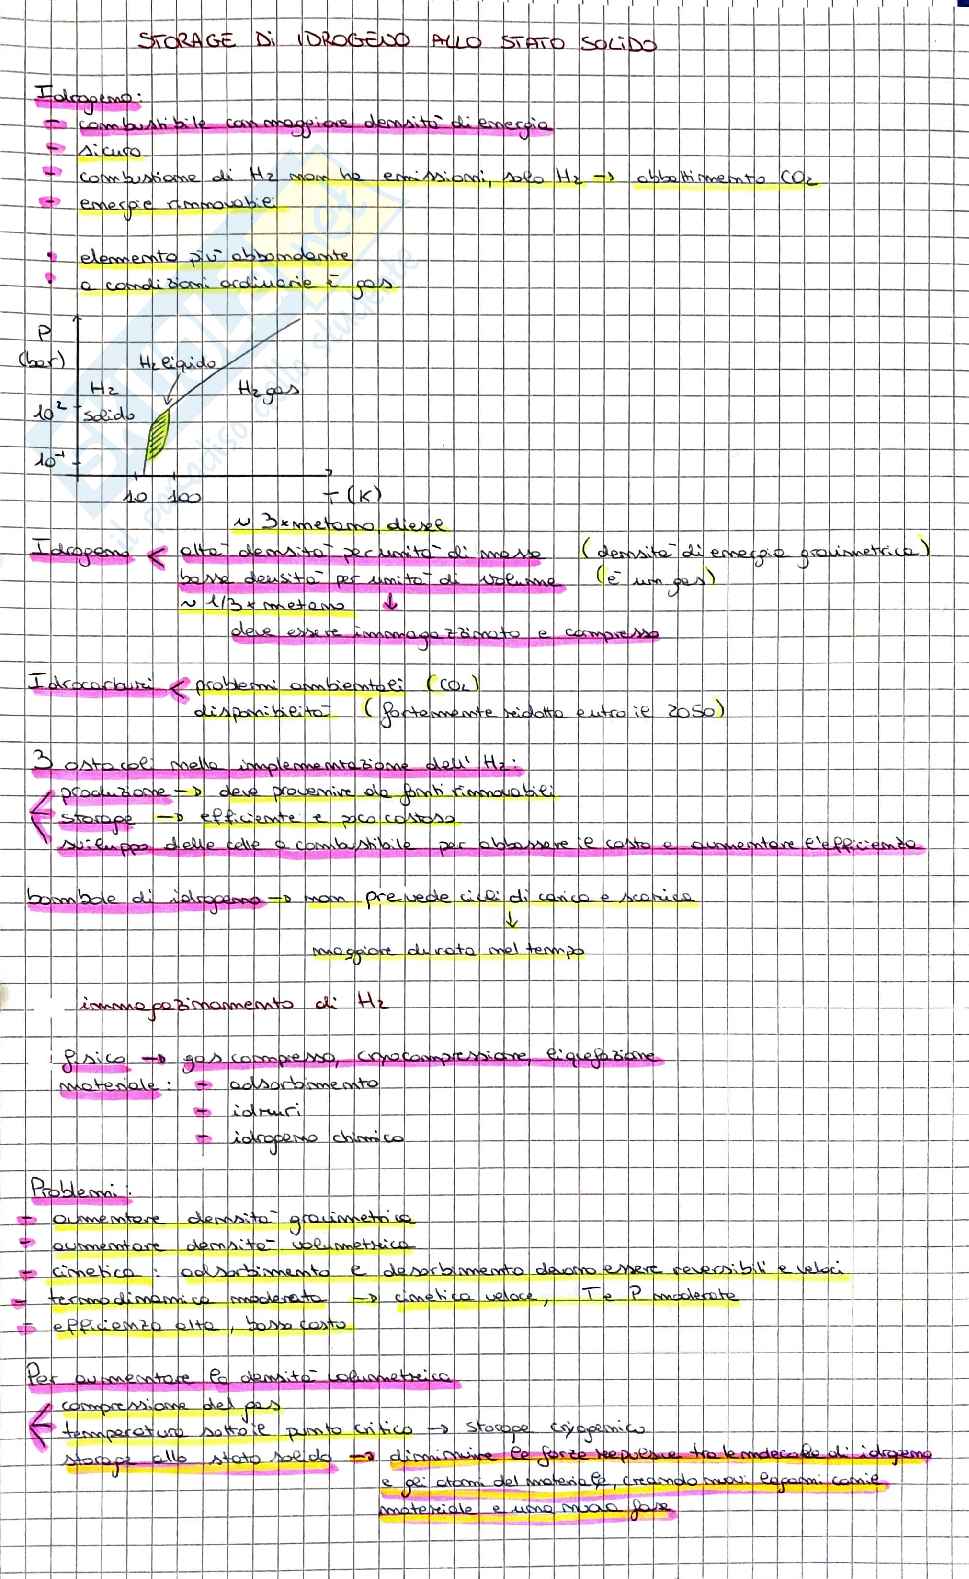 STORAGE DI IDROGENO ALLO STATO SOLIDO
Idrogeno:
- combustibile con maggiore densità di energia
- sicuro
- combustione di H2 non ha emissioni, solo H2 → abbattimento CO2
- energie rinnovabili
• elemento più abbondante
• a condizioni ordinarie è gas
P
(bar)
H2 liquido
H2
solido
H2 gas
10²
10⁻¹
10 100
T (K)
~ 3 × metano diesel
Idrogeno < alta densità per unità di massa (densità di energia gravimetrica)
bassa densità per unità di volume (è un gas)
~ 1/3 × metano ↓
deve essere immagazzinato e compresso
Idrocarburi < problemi ambientali (CO2)
disponibilità (fortemente ridotta entro il 2050)
3 ostacoli nella implementazione dell'H2:
< produzione → deve provenire da fonti rinnovabili
storage → efficiente e poco costoso
sviluppo delle celle a combustibile per abbassare il costo e aumentare l'efficienza
bombole di idrogeno → non prevede cicli di carica e scarica
↓
maggiore durata nel tempo
immagazzinamento di H2
fisico → gas compresso, cryocompressione, liquefazione
materiale: - adsorbimento
- idruri
- idrogeno chimico
Problemi:
- aumentare densità gravimetrica
- aumentare densità volumetrica
- cinetica: adsorbimento e desorbimento devono essere reversibili e veloci
- termodinamica moderata → cinetica veloce, T e P moderate
- efficienza alta, basso costo
Per aumentare la densità volumetrica
< compressione del gas
temperatura sotto il punto critico → storage cryogenico
storage allo stato solido → diminuire le forze repulsive tra le molecole di idrogeno
e gli atomi del materiale, creando nuovi legami con il
materiale e una nuova fase